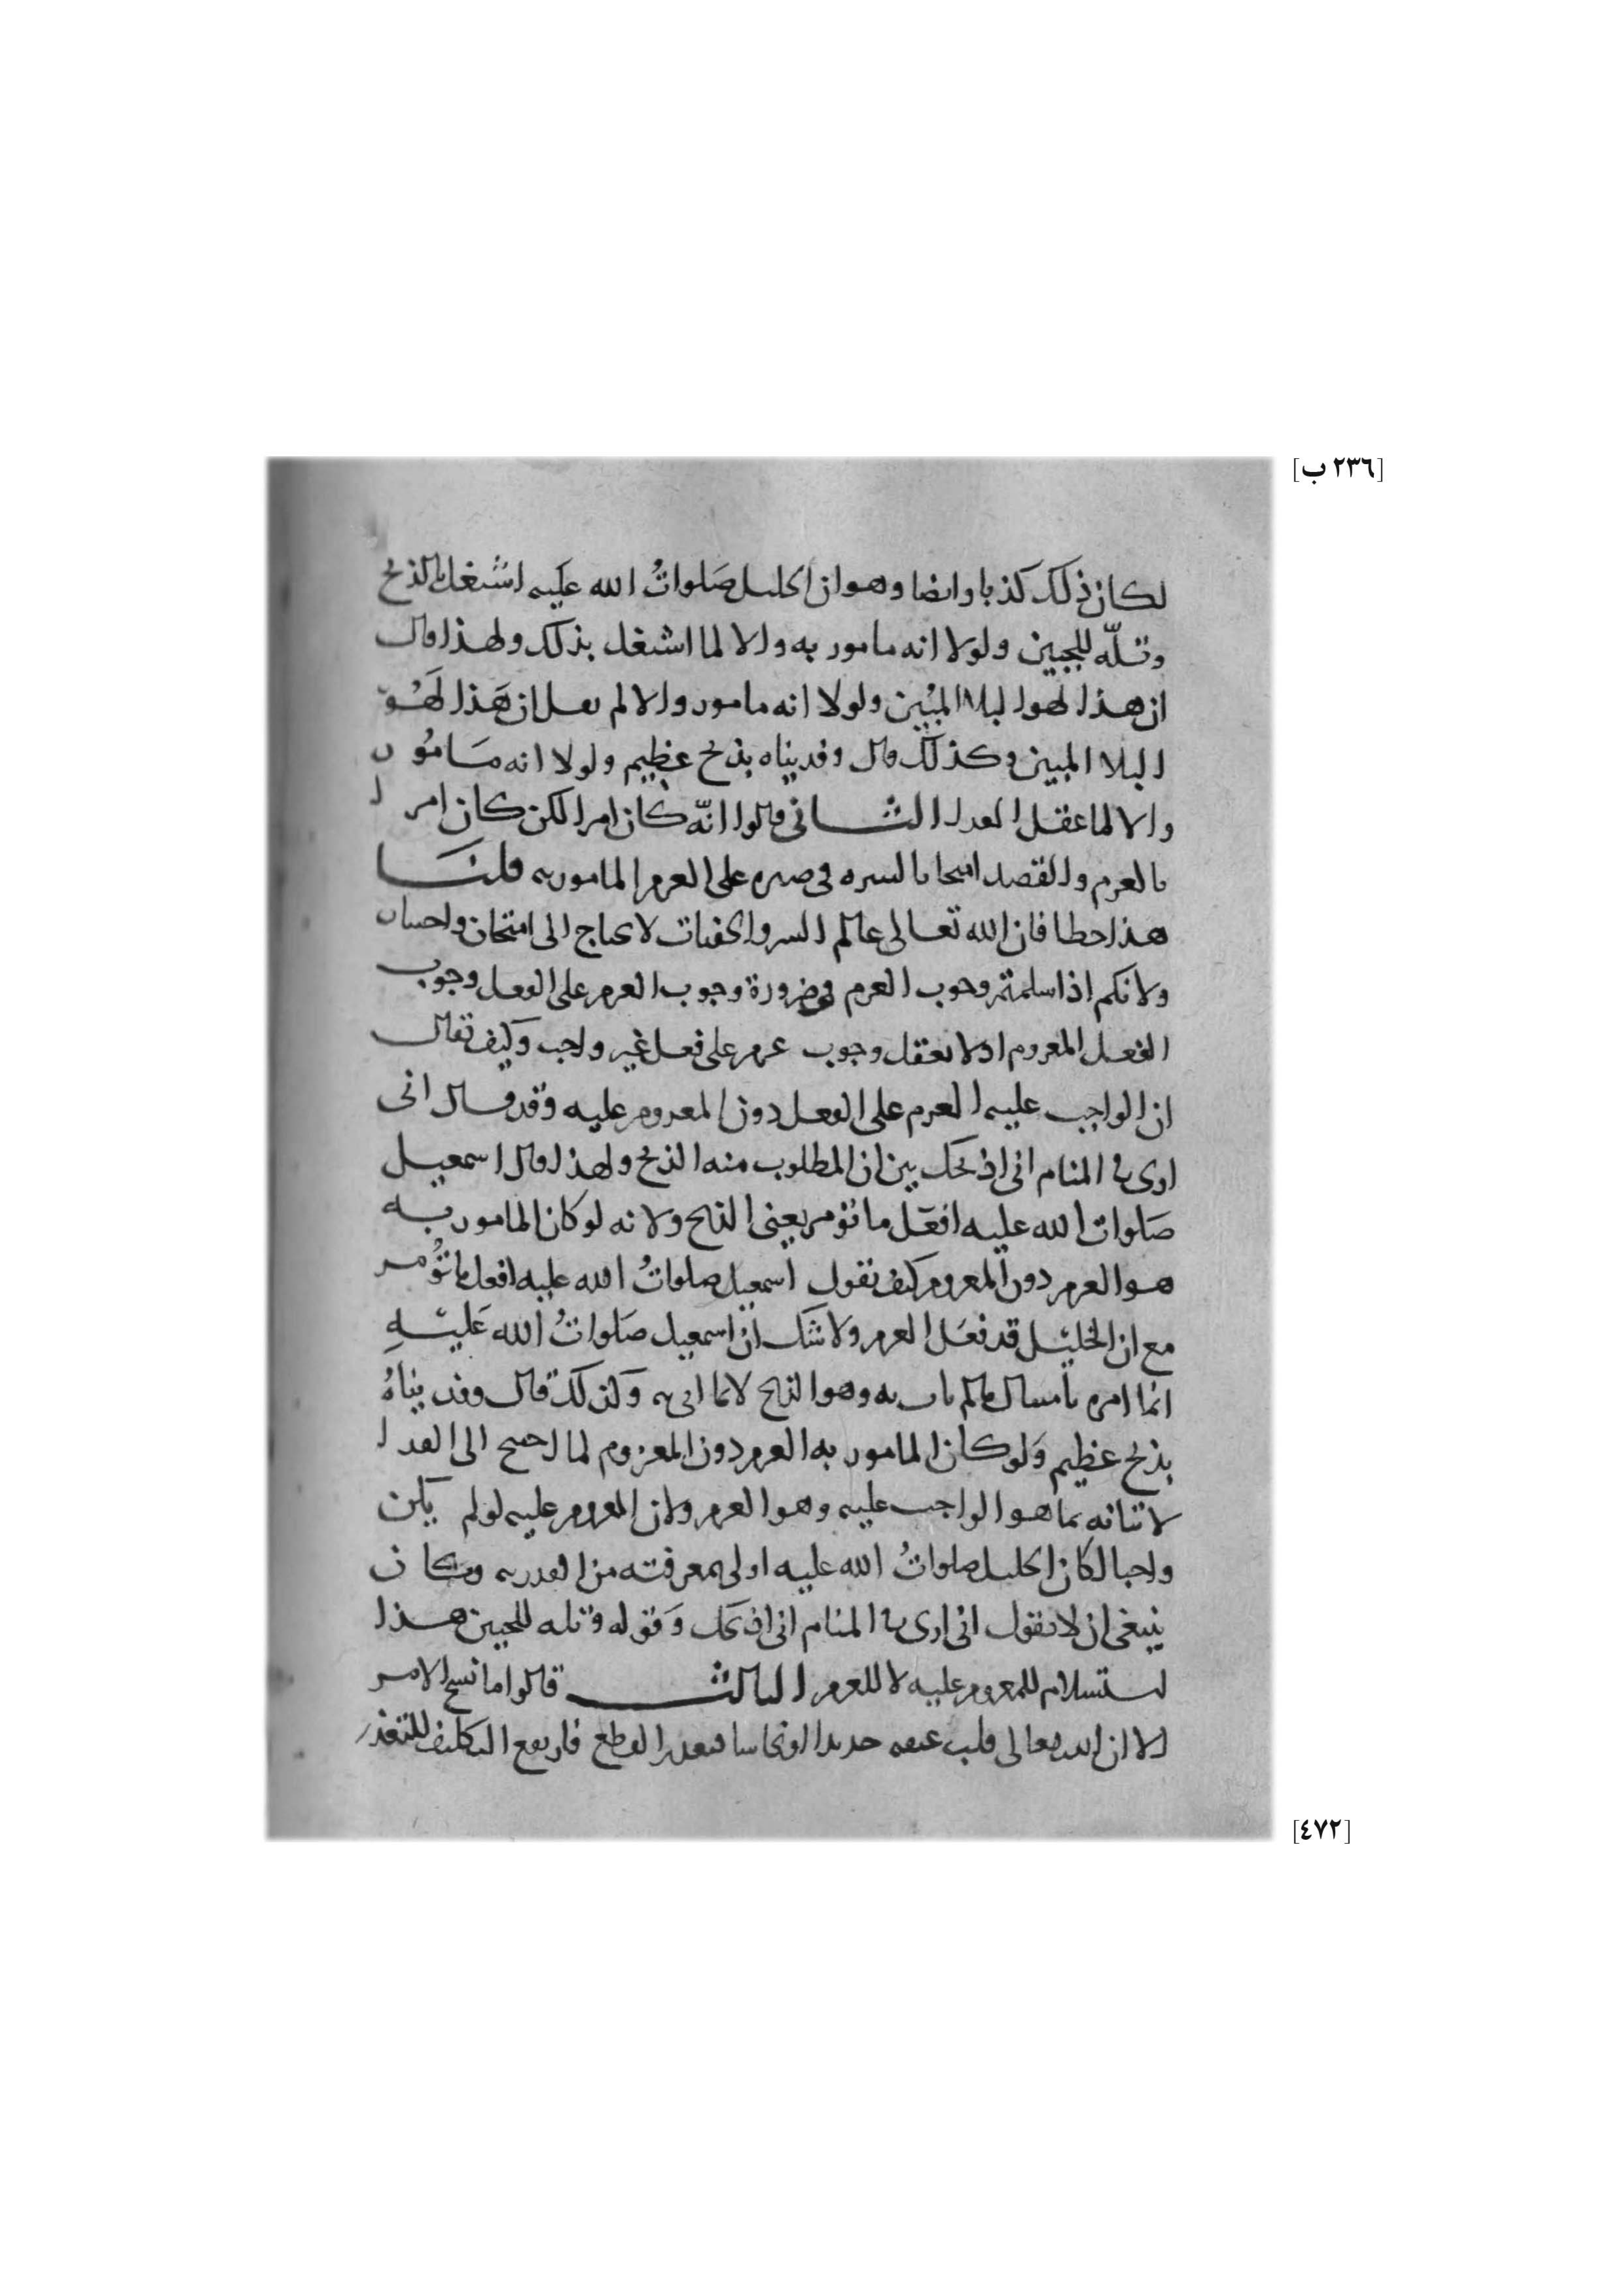 [٢٣٦ ب]
لكان ذلك كذبا وايضا وهو ان الخليل صَلواتُ الله عليه اشتغل بالذبح
وتلّه للجبين ولولا انه مامور به والا لما اشتغل بذلك ولهذا قال
ان هذا لهو البلا المبُين ولولا انه مامور والا لم يقل ان هَذا لهُو
البلا المبين وكذلك قال وفديناه بذبح عظيم ولولا انه مَامُور
والا لما عقل الفدا الثانى قالوا انّه كان امرا لكن كان امرا
بالعزم والقصد امتحانا لسره فى صبره على العزم المامور به قلنا
هذا خطا فان الله تعالى عالم السر والخفيات لا يحتاج الى امتحان واختبار
ولانكم اذا سلمتم وجوب العزم فضرورة وجوب العزم على الفعل وجوب
الفعل المعزوم اذ لا يعقل وجوب عزم على فعل غير واجب وكيف يقال
ان الواجب عليه العزم على الفعل دون المعزوم عليه وقد قال انى
ارى فى المنام انى اذبحك بين ان المطلوب منه الذبح ولهذا قال اسمعيل
صَلوات الله عليه افعَل ما تؤمر يعنى الذبح ولانه لو كان المامور به
هو العزم دون المعزوم كيف يقول اسمعيل صلواتُ الله عليه افعل ما تؤُمر
مع ان الخليل قد فعَل العزم ولا شك ان اسمعيل صَلواتُ الله عَليْهِ
انما امره بامتثال ما لم يات به وهو الذبح لا بما اتى به وكذلك قال وفديناهُ
بذبح عظيم وَلو كان المامور به العزم دون المعزوم لما احتيج الى الفدا
لاتيانه بما هو الواجب عليه وهو العزم ولان المعزوم عليه لو لم يكن
واجبا لكان الخليل صلواتُ الله عليه اولى بمعرفته من القدريه وكان
ينبغى ان لا يقول انى ارى فى المنام انى اذبحك وَقوله وتله للجبين هذا
استسلام للمعزوم عليه لا للعزم الثالث قالوا ما نسخ الامر
الا ان الله تعالى قلب عنقه حديدا او نحاسا فتعذر القطع فارتفع التكليف للتعذر
[٤٧٢]